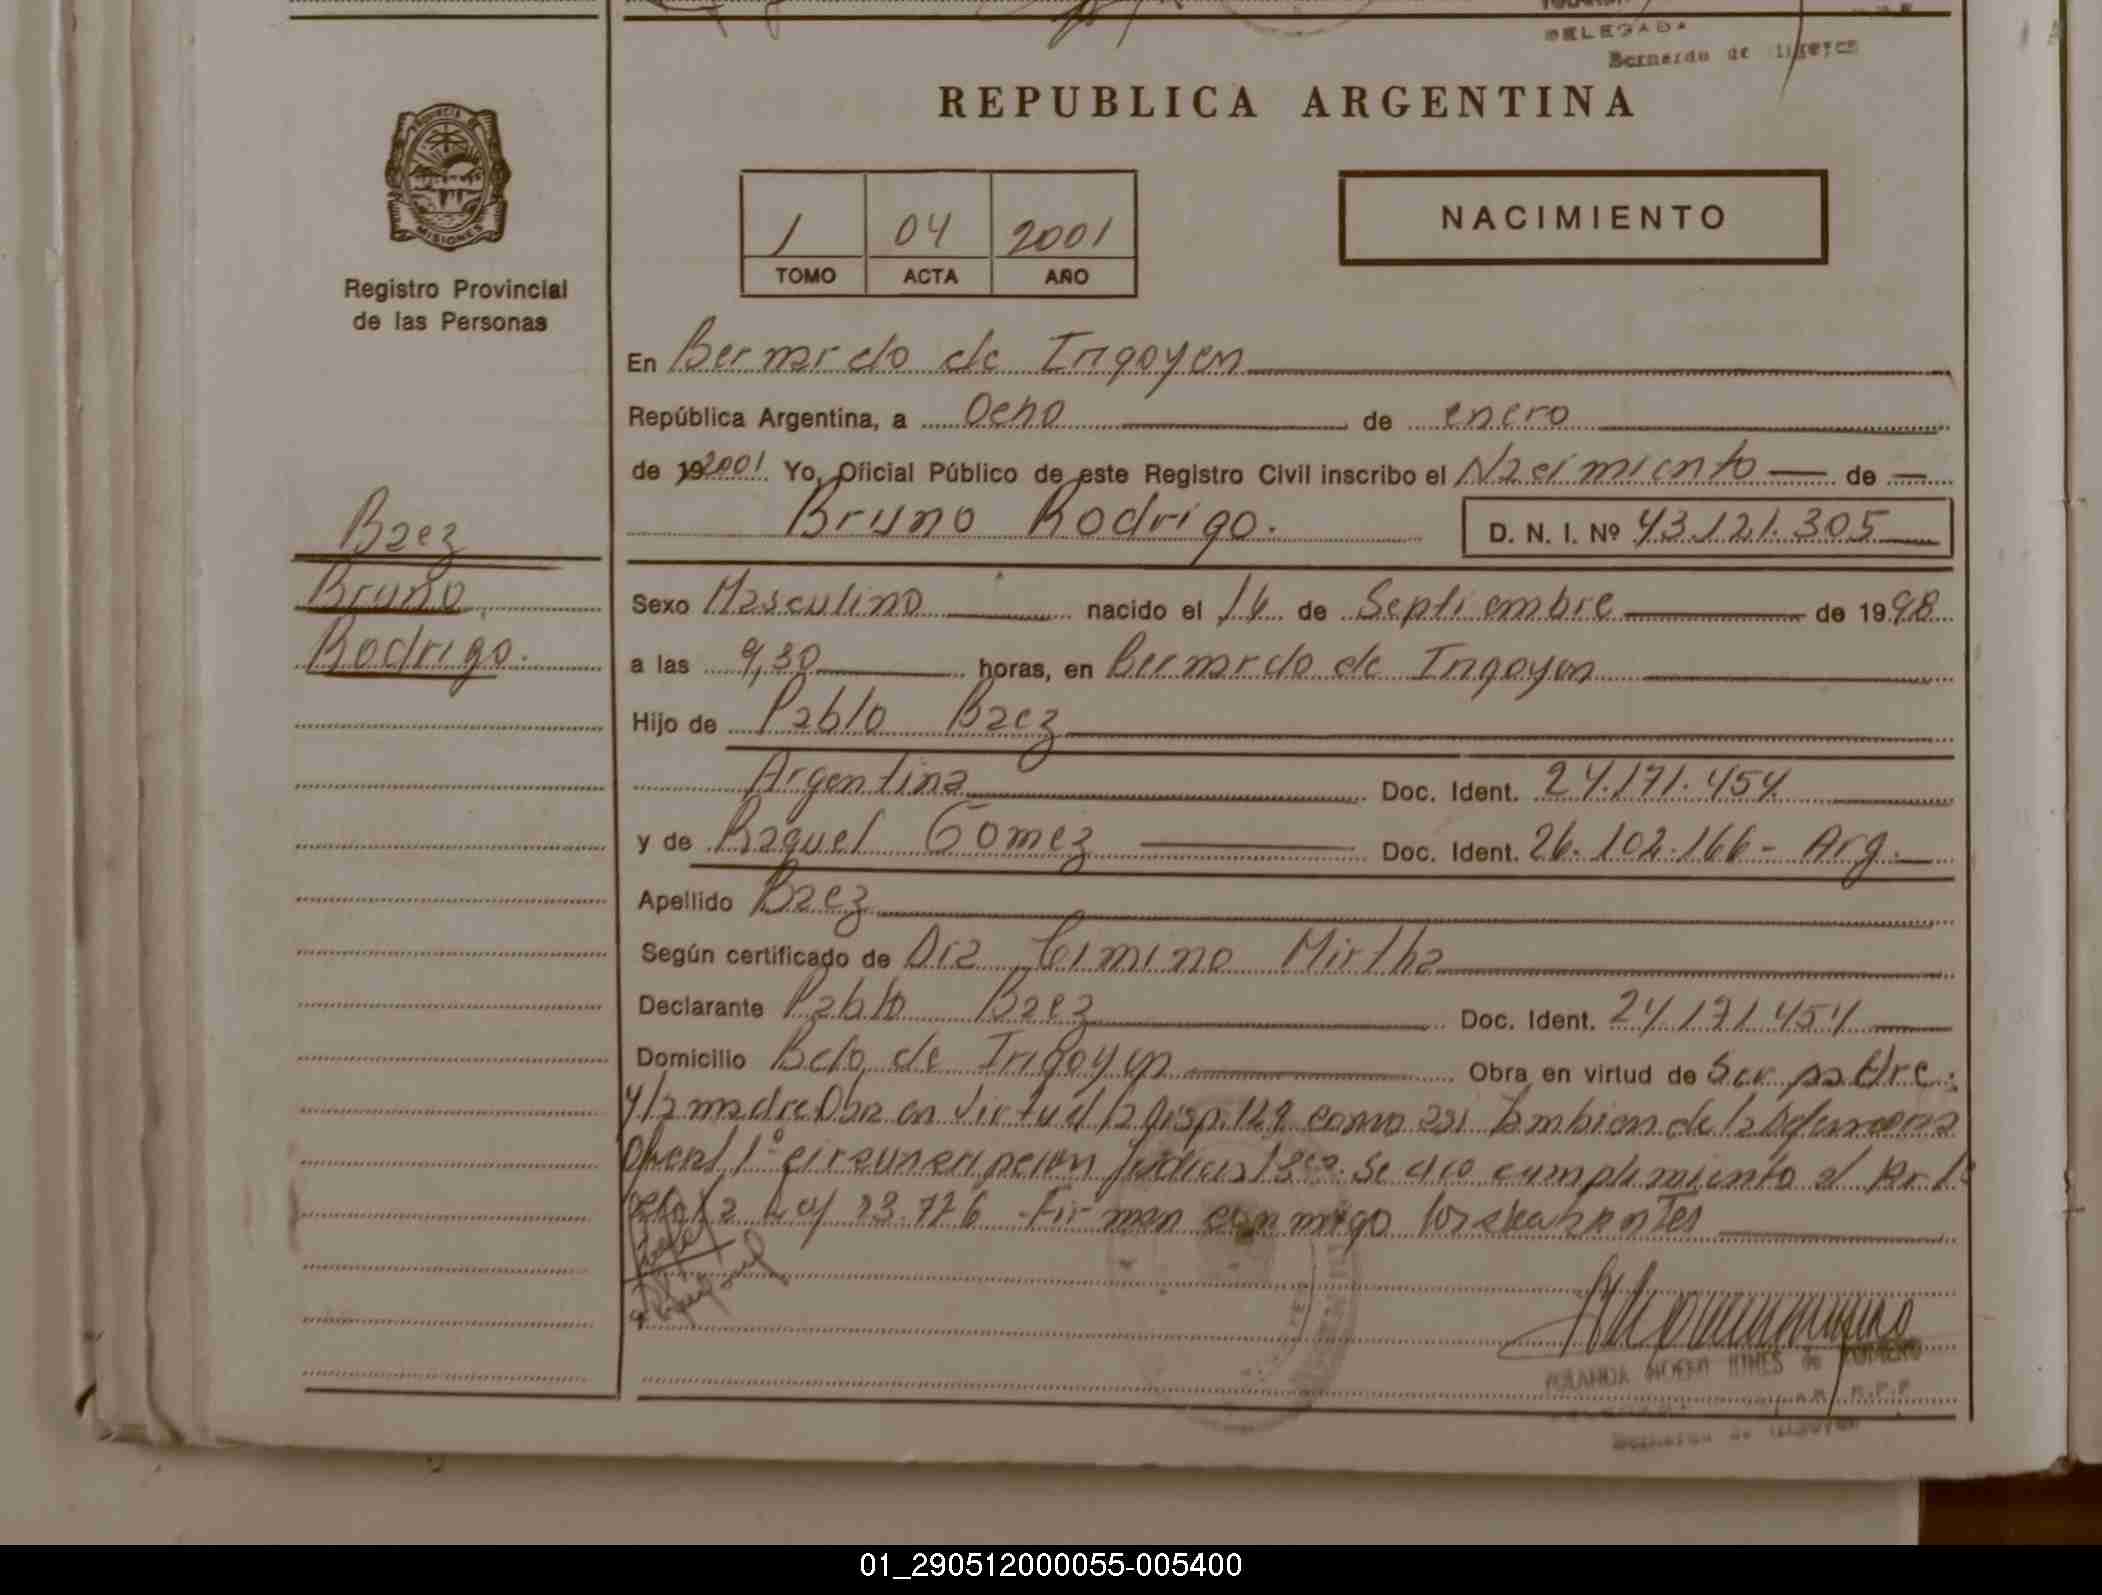 DELEGADA
Bernardo de Irigoyen
REPUBLICA ARGENTINA
PROVINCIA DE
MISIONES
Registro Provincial
de las Personas
1 04 2001
TOMO ACTA AÑO
NACIMIENTO
En Bernardo de Irigoyen
República Argentina, a Ocho de enero
de 192001 Yo, Oficial Público de este Registro Civil inscribo el Nacimiento de
Bruno Rodrigo. D. N. I. Nº 43.121.305
Baez
Bruno
Rodrigo.
Sexo Masculino nacido el 16 de Septiembre de 1998
a las 9,30 horas, en Bernardo de Irigoyen
Hijo de Pablo Baez
Argentina Doc. Ident. 24.171.454
y de Raquel Gomez Doc. Ident. 26.102.166- Arg.
Apellido Baez
Según certificado de Dra Cimino Mirtha
Declarante Pablo Baez Doc. Ident. 24.171.454
Domicilio Bdo de Irigoyen Obra en virtud de Ser padre.
y la madre Obra en virtud la Disp. como asi tambien de la
1º circunscripcion Judicial se dio cumplimiento al
23.726 - Firman conmigo los
YOLANDA NOEMI de ROMERO
R.P.P.
Bernardo de Irigoyen
01_290512000055-005400